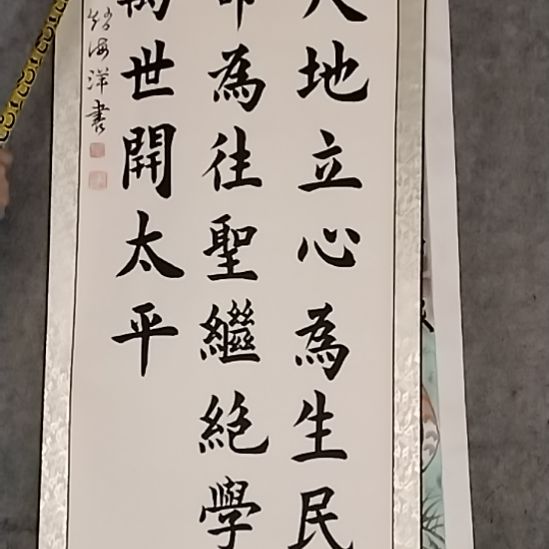 天地立心為生民
命為往聖繼絕學
萬世開太平
海洋書